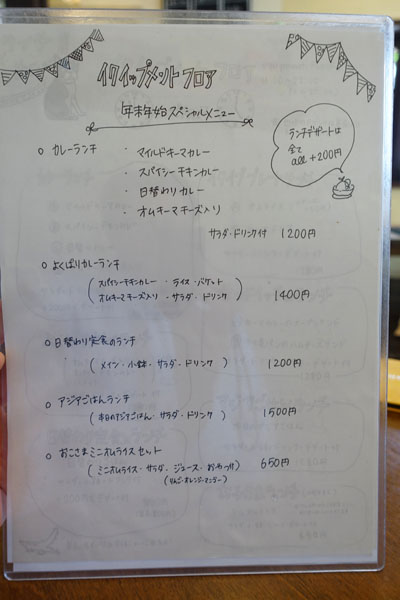 イクイップメントフロア
年末年始スペシャルメニュー
ランチデザートは
全て
all +200円
○ カレーランチ ・ マイルドキーマカレー
・ スパイシーチキンカレー
・ 日替わりカレー
・ オムキーマチーズ入り
サラダ・ドリンク付 1200円
○ よくばりカレーランチ
(スパイシーチキンカレー ・ ライス・バゲット
オムキーマチーズ入り ・ サラダ・ドリンク) 1400円
○ 日替わり定食のランチ
(メイン・小鉢・サラダ・ドリンク) 1200円
○ アジアごはんランチ
(本日のアジアごはん・サラダ・ドリンク) 1500円
○ おこさまミニオムライスセット
(ミニオムライス・サラダ・ジュース・おやつ付) 650円
(りんご・オレンジ・マンゴー)